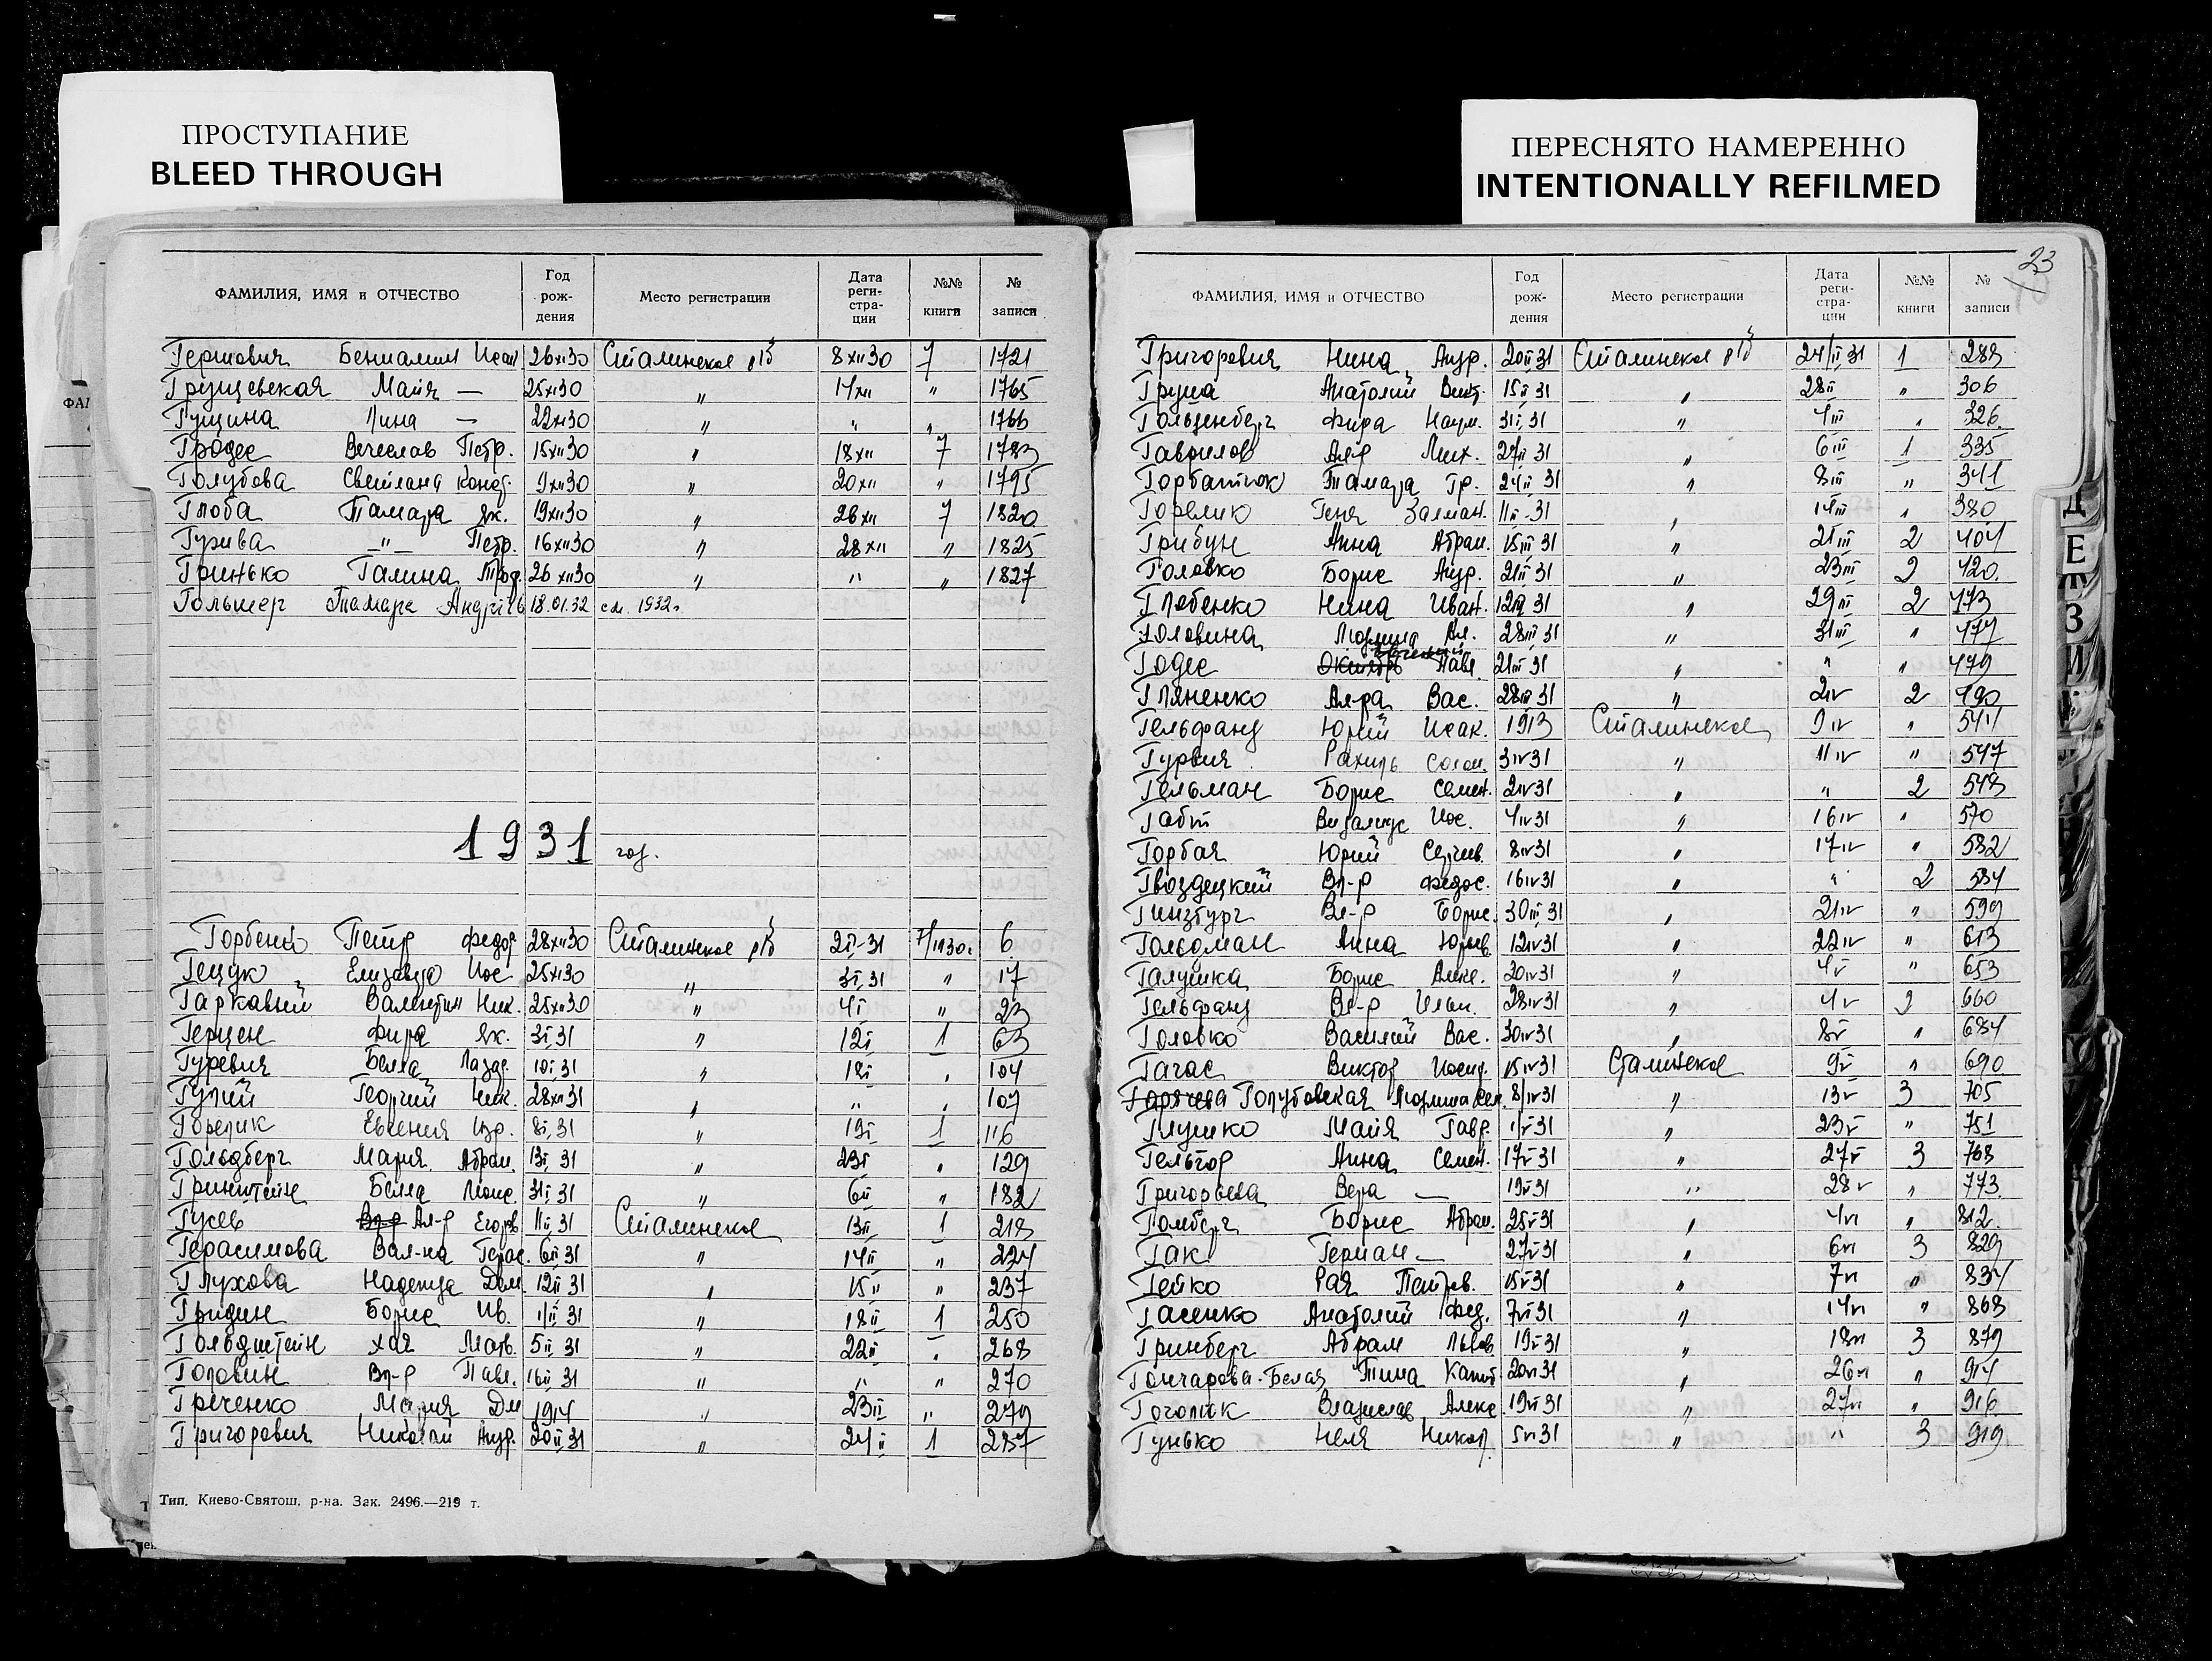 ПРОСТУПАНИЕ
BLEED THROUGH
ПЕРЕСНЯТО НАМЕРЕННО
INTENTIONALLY REFILMED
ФАМИЛИЯ, ИМЯ и ОТЧЕСТВО Год рождения Место регистрации Дата регистрации №№ книги № записи
Гершович Бениамин Исаак 26 XII 30 Сталинское 8 XII 30 7 1721
Грущевская Майя — 25 XI 30 " 17 XII " 1765
Гущина Лина — 22 XI 30 " " " 1766
Гродес Вечеслав Петр. 15 XII 30 " 18 XII 7 1783
Голубова Светлана Конст. 9 XII 30 " 20 XII " 1795
Глоба Тамара Як. 19 XII 30 " 26 XII 7 1820
Гурива —"— Петр. 16 XII 30 " 28 XII " 1825
Гринько Галина 26 XII 30 " " " 1827
Гольмер Тамара 18.01.32 см. 1932г.
1931 год.
Горбенко Петр Федор 28 XII 30 Сталинское 2 I-31 7/1930г. 6
Гещук Елизавета Иос 25 XI 30 " 3 I 31 " 17
Гаркавий Валентин Ник. 25 XII 30 " 4 I " 23
Герцен Фира Як. 3 I 31 " 12 I 1 63
Гуревич Белла Лазар. 10 I 31 " 18 I " 104
Гупий Георгий Ник. 28 XII 31 " " " 107
Горелик Евгения Изр. 8 I 31 " 19 I 1 116
Гольдберг Мария Абрам. 13 I 31 " 23 I " 129
Гринштейн Белла Моис. 31 I 31 " 6 II " 182
Гусев Ал-р Егоров 1 II 31 Сталинское 13 II 1 218
Герасимова Вал-на Герас. 6 II 31 " 14 II " 224
Глухова Надежда Дем. 12 II 31 " 15 II " 237
Гридин Борис Ив. 1/II 31 " 18 II 1 250
Гольдштейн Хая Матв. 5 II 31 " 22 II " 268
Головин Вл-р Павл. 16 II 31 " " " 270
Греченко Мария Дм 1914 " 23 II " 279
Григорович Николай Андр. 20 II 31 " 24 II 1 287
Тип. Киево-Святош. р-на. Зак. 2496.—219 т.
23
ФАМИЛИЯ, ИМЯ и ОТЧЕСТВО Год рождения Место регистрации Дата регистрации №№ книги № записи
Григорович Нина Андр. 20 II 31 Сталинское 24/II 31 1 288
Груша Анатолий Викт. 15 II 31 " 28 II " 306
Гользенберг Фира Наум. 31 I 31 " 4 III " 326
Гаврилов Ал-р Мих. 27 II 31 " 6 III 1 335
Горбатюк Тамара Гр. 24 II 31 " 8 III " 341
Горелик Геня Залман. 11 II-31 " 14 III " 380
Грибун Анна Абрам. 15 III 31 " 21 III 2 404
Головко Борис Андр. 21 II 31 " 23 III 2 420
Глебенко Нина Иван. 31 " 29 III 2 473
Головина Людмила Ал. 28 III 31 " 31 III " 477
Годес Октябрь Павл. 21 III 31 " " " 479
Гляненко Ал-ра Вас. 28 III 31 " 2 IV 2 490
Гельфанд Юрий Исак. 1913 Сталинское 9 IV " 541
Гурвич Рахиль Солом. 3 IV 31 " 11 IV " 547
Гельман Борис Семен. 2 IV 31 " " 2 548
Габт Иос. 4 IV 31 " 16 IV " 570
Горбач Юрий Сергеев. 8 IV 31 " 17 IV " 582
Гвоздецкий Вл-р Федос. 16 IV 31 " " 2 584
Гинзбург Вл-р Борис. 30 III 31 " 21 IV " 599
Гольдман Анна Юрьев. 12 IV 31 " 22 IV " 613
Галушка Борис Алекс. 20 IV 31 " 4 V " 653
Гельфанд Вл-р 28 IV 31 " 4 V 2 660
Головко Василий Вас. 30 IV 31 " 8 V " 684
Гагас Виктор Иосиф. 15 IV 31 Сталинское 9 V " 690
Горячева Голубовская Людмила Сем. 8/IV 31 " 13 V 3 705
Глушко Майя Гавр. 1/V 31 " 23 V " 751
Гельгор Анна Семен. 17 V 31 " 27 V 3 768
Григорьева Вера — 19 V 31 " 28 V " 773
Гомберг Борис Абрам. 25 V 31 " 4 VI " 812
Гак Герман — 27 V 31 " 6 VI 3 829
Гейко Рая Петров. 15 V 31 " 7 VI " 834
Гасенко Анатолий Фед. 7 VI 31 " 14 VI " 868
Гринберг Абрам Львов. 19 V 31 " 18 VI 3 879
Гончарова-Белая Тина 20 VI 31 " 26 VI " 914
Гоголюк Владислав Алекс. 19 VI 31 " 27 VI " 916
Гунько Неля Никол. 5 VI 31 " " 3 919